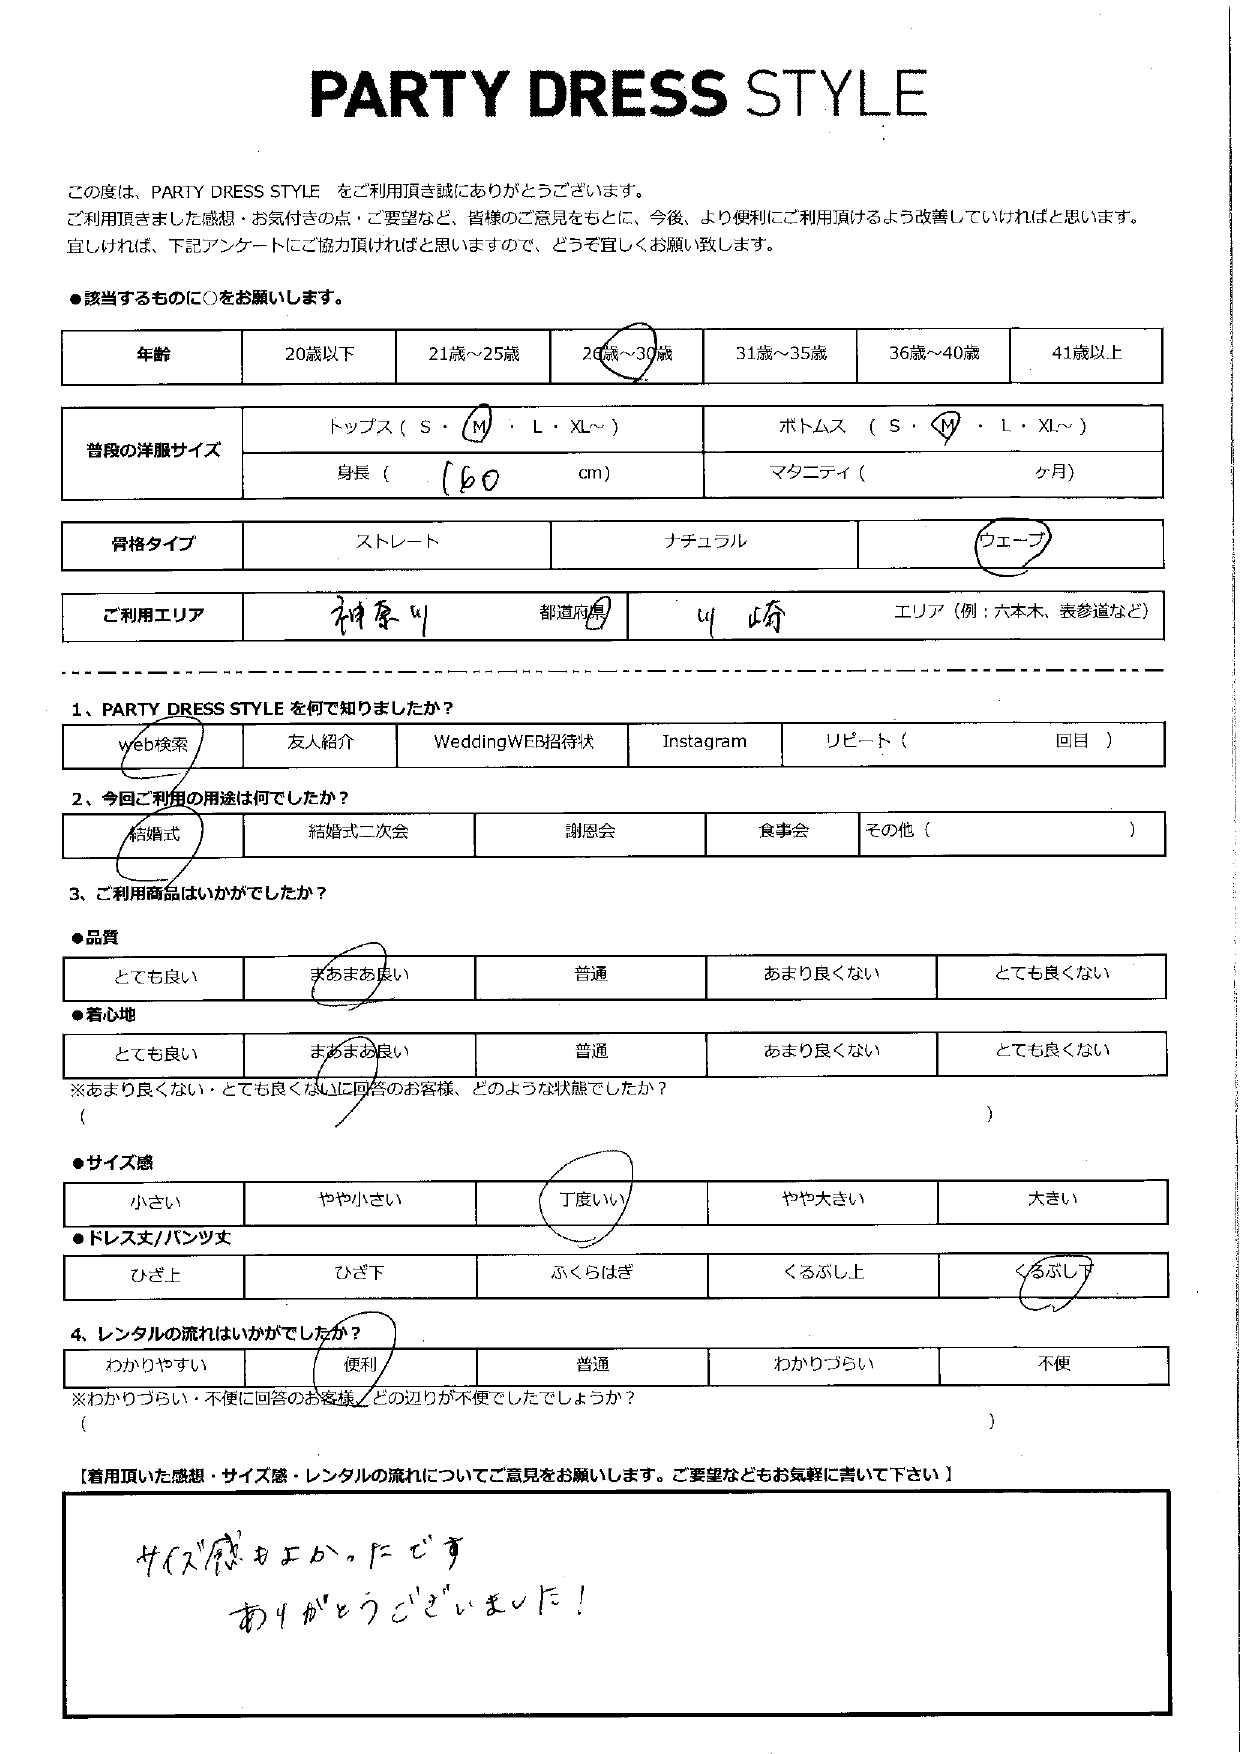 PARTY DRESS STYLE
この度は、PARTY DRESS STYLE をご利用頂き誠にありがとうございます。
ご利用頂きました感想・お気付きの点・ご要望など、皆様のご意見をもとに、今後、より便利にご利用頂けるよう改善していければと思います。
宜しければ、下記アンケートにご協力頂ければと思いますので、どうぞ宜しくお願い致します。
●該当するものに○をお願いします。
年齢 20歳以下 21歳～25歳 26歳～30歳 31歳～35歳 36歳～40歳 41歳以上
普段の洋服サイズ トップス ( S ・ M ・ L ・ XL～ ) ボトムス ( S ・ M ・ L ・ XL～ )
身長 ( 160 cm) マタニティ ( ケ月)
骨格タイプ ストレート ナチュラル ウェーブ
ご利用エリア 神奈川 都道府県 川崎 エリア（例：六本木、表参道など）
1、PARTY DRESS STYLE を何で知りましたか？
web検索 友人紹介 WeddingWEB招待状 Instagram リピート ( 回目 )
2、今回ご利用の用途は何でしたか？
結婚式 結婚式二次会 謝恩会 食事会 その他 ( )
3、ご利用商品はいかがでしたか？
●品質
とても良い まあまあ良い 普通 あまり良くない とても良くない
●着心地
とても良い まあまあ良い 普通 あまり良くない とても良くない
※あまり良くない・とても良くないに回答のお客様、どのような状態でしたか？
( )
●サイズ感
小さい やや小さい 丁度いい やや大きい 大きい
●ドレス丈/パンツ丈
ひざ上 ひざ下 ふくらはぎ くるぶし上 くるぶし下
4、レンタルの流れはいかがでしたか？
わかりやすい 便利 普通 わかりづらい 不便
※わかりづらい・不便に回答のお客様、どの辺りが不便でしたでしょうか？
( )
【着用頂いた感想・サイズ感・レンタルの流れについてご意見をお願いします。ご要望などもお気軽に書いて下さい】
サイズ感もよかったです
ありがとうございました！